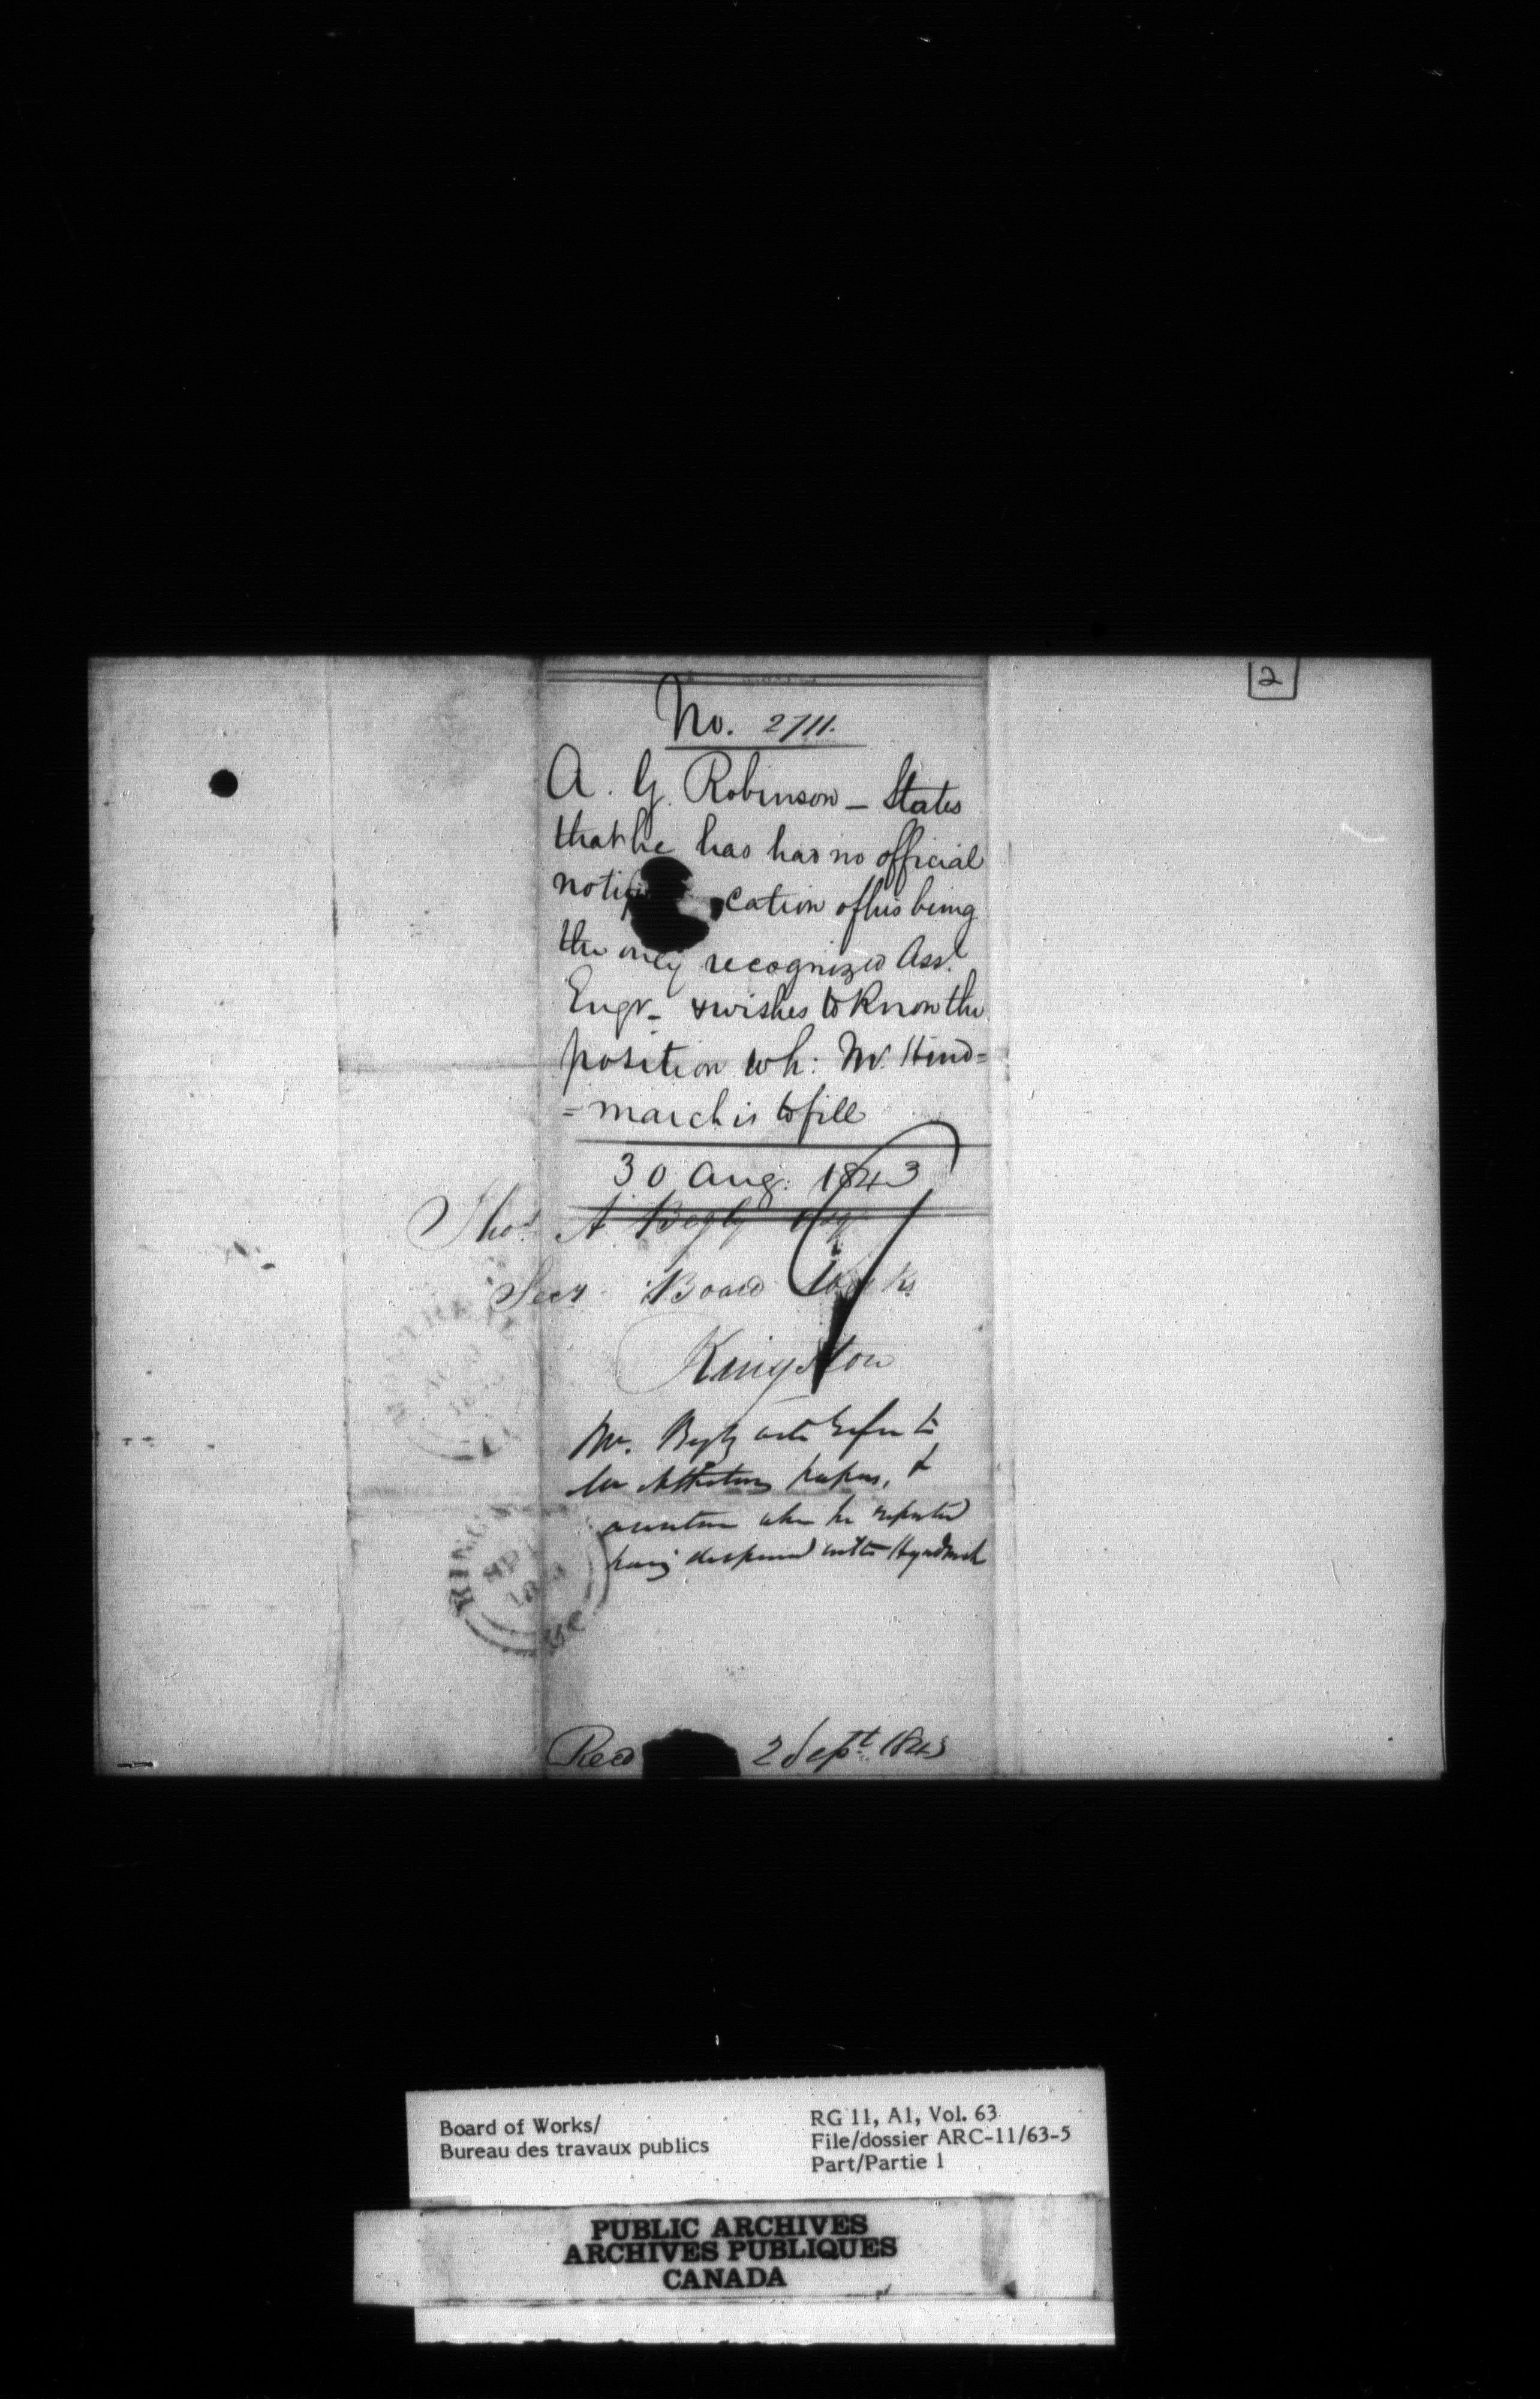 2
No. 2711.
A. G. Robinson – States
that he has had no official
notifi cation of his being
the only recognized Asst.
Engr – & wishes to know the
position wh: Mr. Hind=
=march is to fill
30 Aug: 1843
Thos. A Begly Esq
Secy Board Works
Kingston
MONTREAL
AU
18
Mr. Begly will refer to
papers, &
when he reported
having dispensed with
KINGS
SP
184
UC
Recd 2 Sept. 1843
Board of Works/
Bureau des travaux publics
RG 11, A1, Vol. 63
File/dossier ARC-11/63-5
Part/Partie 1
PUBLIC ARCHIVES
ARCHIVES PUBLIQUES
CANADA